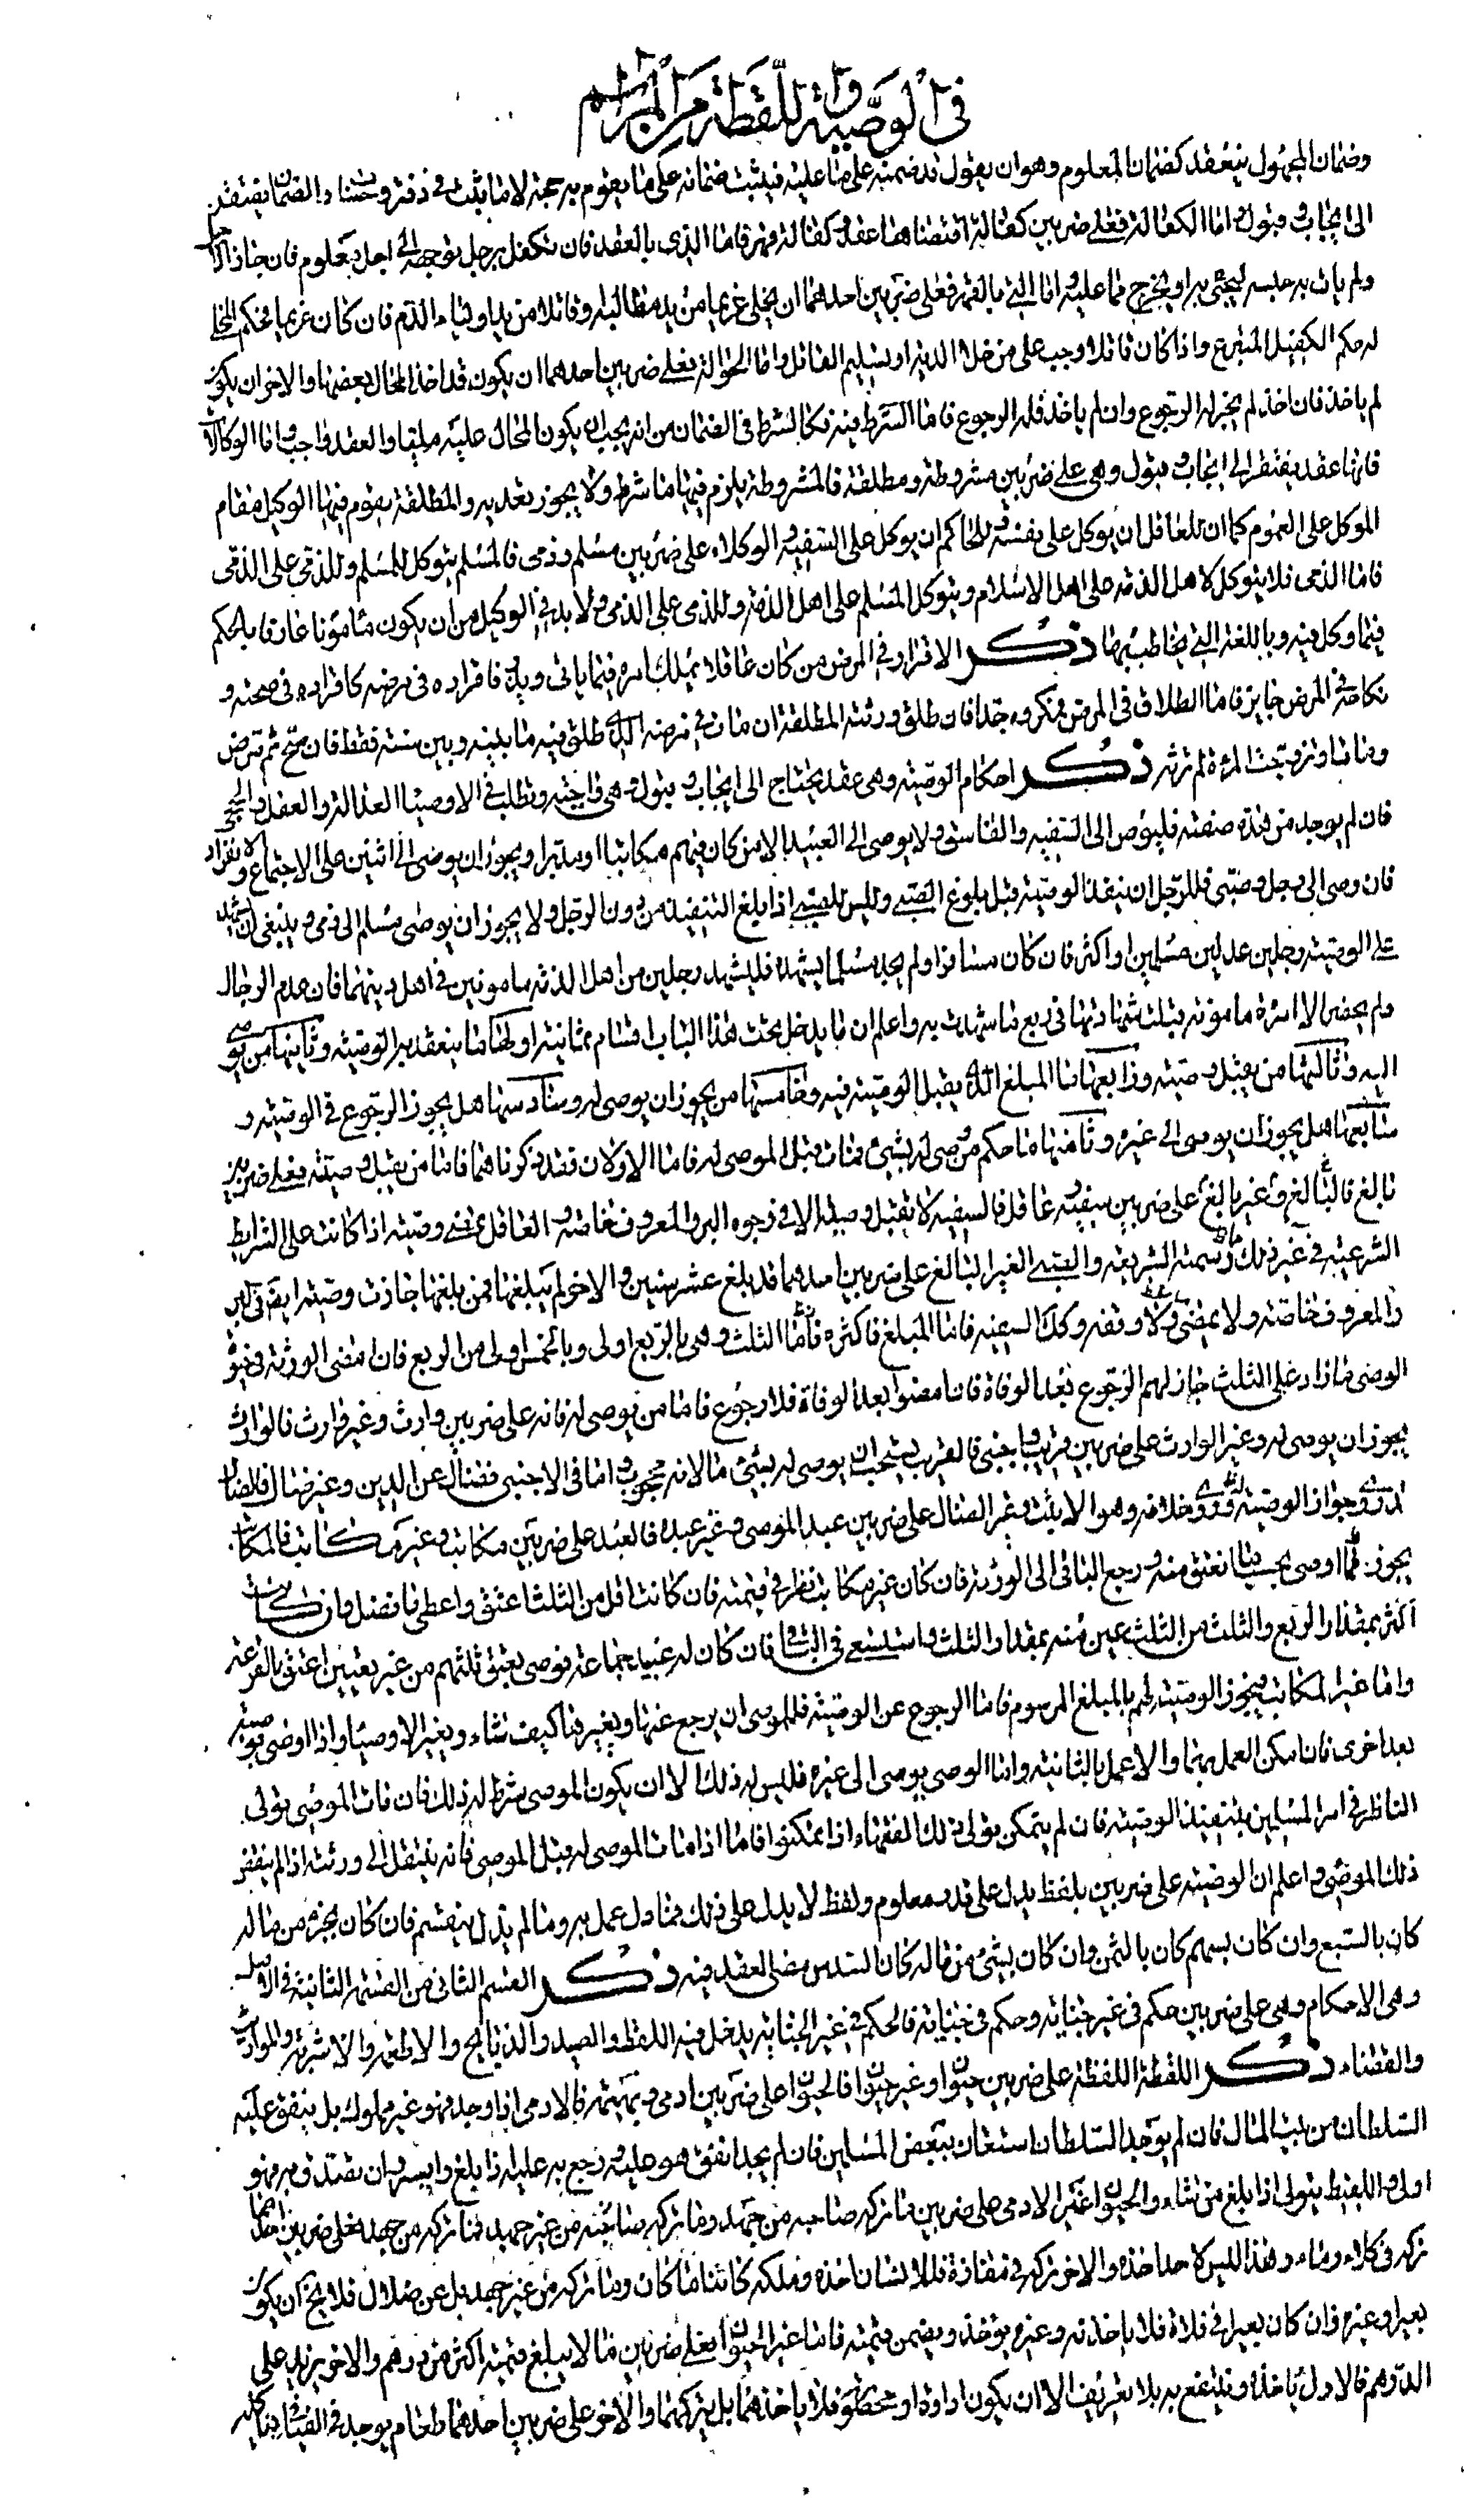 في الوصية واللقطة من المراسم
وضمان المجهول ينعقد كضمان المعلوم وهو ان يقول قد ضمنت على ما عليه فيثبت ضمانه على ما يقوم به حجة لا ما يثبت في دفتر وحساب والضمان يفتقر
الى ايجاب وقبول فاما الكفالة فعلى ضربين كفالة اقتضاها عقد وكفالة قهر فاما الذي بالعقد فان تكفل برجل بوجهه الى اجل معلوم فان جاز الاجل
ولم يات به حبسه ليجئ به او يخرج مما عليه واما التي بالقهر فعلى ضربين احدهما ان يخلى غريما من يد مطالبه وقاتلا من يد اولياء الدم فان كان غريما فحكم المخلى
له حكم الكفيل المتبرع واذا كان قاتلا وجب على من خلاه الدية او تسليم القاتل واما الحوالة فعلى ضربين احدهما ان يكون قد اخذ المحال بعضها والاخر ان يكون
لم ياخذ فان اخذ لم يجز له الرجوع وان لم ياخذ فله الرجوع فاما الشرط فيه فكالشرط في الضمان من انه يجب ان يكون المحال عليه مليا والعقد واجب واما الوكالات
فانها عقد يفتقر الى ايجاب وقبول وهي على ضربين مشروطة ومطلقة فالمشروطة يلزم فيها ما شرط ولا يجوز تعديه والمطلقة يقوم فيها الوكيل مقام
الموكل على العموم كما ان للعاقل ان يوكل على نفسه للحاكم ان يوكل على السفيه والوكلاء على ضربين مسلم وذمى فالمسلم يتوكل للمسلم وللذمى على الذمى
فاما الذمى فلا يتوكل لاهل الذمة على اهل الاسلام ويتوكل المسلم على اهل الذمة وللذمى على الذمى ولا بد في الوكيل من ان يكون مامونا عارفا بالحكم
فيما وكل فيه وباللغة التي يخاطب بها ذكر الاقرار في المرض من كان عاقلا يملك امره فيما ياتى ويذر فاقراره في مرضه كاقراره في صحته و
نكاحه في المرض جايز فاما الطلاق في المرض فمكروه جدا فان طلق ورثته المطلقة ان مات في مرضه الذي طلق فيه ما بينه وبين سنة فقط فان صح ثم مرض
ومات او تزوجت المرءة لم ترثه ذكر احكام الوصية وهي عقد يحتاج الى ايجاب وقبول وهي واجبة وتطلب في الاوصياء العدالة والعقل والحجى
فان لم يوجد من هذه صفته فليوص الى السفيه والفاسق ولا يوصى الى العبيد الا من كان فيهم مكاتبا او مدبرا ويجوز ان يوصى الى اثنين على الاجتماع والانفراد
فان وصى الى رجل وصبى فللرجل ان ينفذ الوصية قبل بلوغ الصبى وليس للصبى اذا بلغ التنفيذ من دون الرجل ولا يجوز ان يوصى مسلم الى ذمى وينبغى ان يشهد
على الوصية رجلين عدلين مسلمين او اكثر فان كان مسافرا ولم يجد مسلما يشهده فليشهد رجلين من اهل الذمة مامونين في اهل دينهما فان عدم الرجال
ولم يحضر الا امرءة مامونة قبلت شهادتها في ربع ما شهدت به واعلم ان ما يدخل تحت هذا الباب اقسام ثمانية اولها ما ينعقد به الوصية وثانيها من يوصى
اليه وثالثها من يقبل وصيته ورابعها ما المبلغ الذي يقبل الوصية فيه وخامسها من يجوز ان يوصى له وسادسها هل يجوز الرجوع في الوصية و
سابعها هل يجوز ان يوصى الى غيره وثامنها ما حكم من وصى له بشئ فمات قبل الموصى له فاما الاولان فقد ذكرناهما فاما من يقبل وصيته فعلى ضربين
بالغ وغير بالغ فالبالغ على ضربين سفيه وعاقل فالسفيه لا تقبل وصيته الا في وجوه البر والمعروف خاصة والعاقل تمضى وصيته اذا كانت على الشرايط
الشرعية في غير ذلك ما رسمته الشريعة والصبى الغير البالغ على ضربين احدهما قد بلغ عشر سنين والاخر لم يبلغها فمن بلغها جازت وصيته ايضا في البر
والمعروف خاصة ولا يمضى هبته ولا وقفه وكذلك السفيه فاما المبلغ فاكثره الثلث وهي بالربع اولى وبالخمس اولى من الربع فان امضى الورثة في حيوة
الوصى ما زاد على الثلث جاز لهم الرجوع بعد الوفاة فان امضوا بعد الوفاة فلا رجوع فاما من يوصى له فانه على ضربين وارث وغير وارث فالوارث
يجوز ان يوصى له وغير الوارث على ضربين قريب واجنبى فالقريب يستحب ان يوصى له بشئ ما لانه محجوب واما في الاجنبى فضال عن الدين وغير ضال فالضال
قد روى جواز الوصية له وروى خلافه وهو الاثبت وغير الضال على ضربين عبد الموصى وغير عبده فالعبد على ضربين مكاتب وغير مكاتب فالمكاتب
يجوز فيما اوصى بحساب ما انعتق منه ورجع الباقى الى الورثة فان كان غير مكاتب نظر في قيمته فان كانت اقل من الثلث اعتق واعطى ما فضل وان كانت
اكثر بمقدار الربع والثلث من الثلث عتق منه بمقدار الثلث واستسعى في الباقى فان كان له عبيد جماعة فوصى بعتق ثلثهم من غير تعيين اعتق بالقرعة
واما غير المكاتب فيجوز الوصية لهم بالمبلغ المرسوم فاما الرجوع عن الوصية فللموصى ان يرجع عنها ويغيرها كيف شاء ويغير الاوصياء واذا اوصى بوصية
بعد اخرى فان امكن العمل بهما والا عمل بالثانية واما الوصى يوصى الى غيره فليس له ذلك الا ان يكون الموصى شرط له ذلك فان مات الموصى تولى
الناظر في امر المسلمين تنفيذ الوصية فان لم يتمكن تولى ذلك الفقهاء اذا تمكنوا فاما اذا مات الموصى له قبل الموصى فانه ينتقل الى ورثته اذا لم ينقض
ذلك الموصى واعلم ان الوصية على ضربين بلفظ يدل على قدر معلوم ولفظ لا يدل على ذلك فما دل عمل به وما لم يدل ينقسم فان كان بجزء من ماله
كان بالسبع وان كان بسهم كان بالثمن وان كان بشئ من ماله كان السدس مضى العقد فيه ذكر القسم الثانى من القسمة الثانية في الاصل
وهي الاحكام وهي على ضربين حكم في غير جناية وحكم في جناية فالحكم في غير الجناية يدخل فيه اللقط والصيد والذبايح والاطعمة والاشربة والمواريث
والقضاء ذكر اللقطة اللقطة على ضربين حيوان وغير حيوان فالحيوان على ضربين ادمى وبهيمة فالادمى اذا وجد فهو غير مملوك بل ينفق عليه
السلطان من بيت المال فان لم يوجد السلطان استعان ببعض المسلمين فان لم يجد انفق هو عليه ورجع به عليه اذا بلغ وايسر وان تصدق به فهو
اولى واللقيط يتولى اذا بلغ من شاء والحيوان غير الادمى على ضربين ما تركه صاحبه من جهد وما تركه صاحبه من غير جهد فما تركه من جهد فعلى ضربين احدهما
تركه في كلاء وماء وهذا ليس لاحد اخذه والاخر تركه في مفازة فللانسان اخذه وملكه كائنا ما كان وما تركه من غير جهد بل عن ضلال فلا يخ ان يكون
بعيرا وغيره فان كان بعيرا في فلاة فلا ياخذنه وغيره يؤخذ ويضمن قيمته فاما غير الحيوان فعلى ضربين ما لا يبلغ قيمته اكثر من درهم والاخر يزيد على
الدرهم فالاول ياخذه وينتفع به بلا تعريف الا ان يكون اداوة او مخصرة فلا ياخذهما بل يتركهما والاخر على ضربين احدهما طعام يوجد في الفيافى فياكله